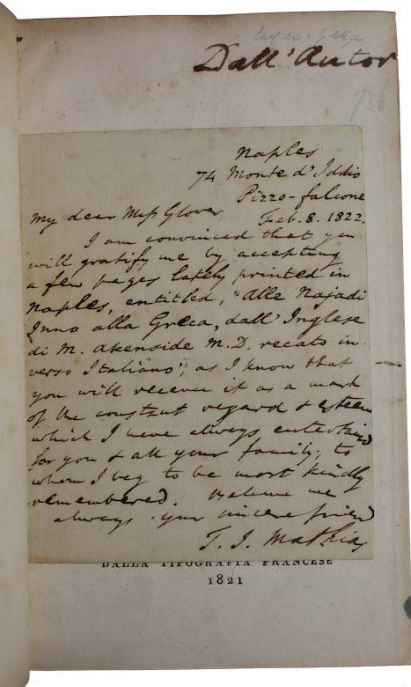 Dall' Autor
736
Naples
74 Monte d' Iddio
Pizzo-falcone
My dear Miss Glover Feb. 8. 1822.
I am convinced that you
will gratify me by accepting
a few pages lately printed in
Naples, entitled, "Alle Najadi
Inno alla Greca, dall' Inglese
di M. Akenside M.D. recato in
verso Italiano"; as I know that
you will receive it as a mark
of the constant regard & esteem
which I have always entertained
for you & all your family; to
whom I beg to be most kindly
remembered. Believe me
always your sincere friend
T. J. Mathias
DALLA TIPOGRAFIA FRANCESE
1821